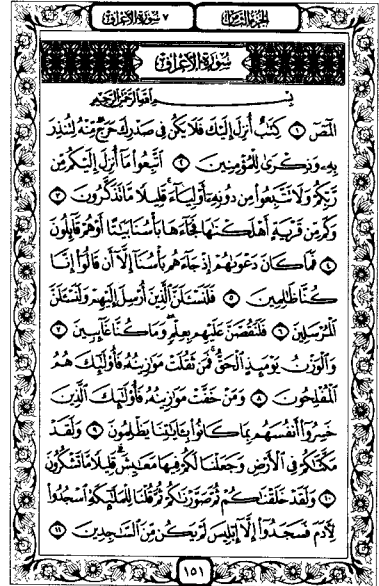 الجزء الثامن
٧ سورة الأعراف
سورة الأعراف
بسم الله الرحمن الرحيم
الٓمٓصٓ ١ كِتَٰبٌ أُنزِلَ إِلَيْكَ فَلَا يَكُن فِى صَدْرِكَ حَرَجٌ مِّنْهُ لِتُنذِرَ
بِهِۦ وَذِكْرَىٰ لِلْمُؤْمِنِينَ ٢ ٱتَّبِعُوا۟ مَآ أُنزِلَ إِلَيْكُم مِّن
رَّبِّكُمْ وَلَا تَتَّبِعُوا۟ مِن دُونِهِۦٓ أَوْلِيَآءَ قَلِيلًا مَّا تَذَكَّرُونَ ٣
وَكَم مِّن قَرْيَةٍ أَهْلَكْنَٰهَا فَجَآءَهَا بَأْسُنَا بَيَٰتًا أَوْ هُمْ قَآئِلُونَ
٤ فَمَا كَانَ دَعْوَىٰهُمْ إِذْ جَآءَهُم بَأْسُنَآ إِلَّآ أَن قَالُوٓا۟ إِنَّا
كُنَّا ظَٰلِمِينَ ٥ فَلَنَسْـَٔلَنَّ ٱلَّذِينَ أُرْسِلَ إِلَيْهِمْ وَلَنَسْـَٔلَنَّ
ٱلْمُرْسَلِينَ ٦ فَلَنَقُصَّنَّ عَلَيْهِم بِعِلْمٍ وَمَا كُنَّا غَآئِبِينَ ٧
وَٱلْوَزْنُ يَوْمَئِذٍ ٱلْحَقُّ فَمَن ثَقُلَتْ مَوَٰزِينُهُۥ فَأُو۟لَٰٓئِكَ هُمُ
ٱلْمُفْلِحُونَ ٨ وَمَنْ خَفَّتْ مَوَٰزِينُهُۥ فَأُو۟لَٰٓئِكَ ٱلَّذِينَ
خَسِرُوٓا۟ أَنفُسَهُم بِمَا كَانُوا۟ بِـَٔايَٰتِنَا يَظْلِمُونَ ٩ وَلَقَدْ
مَكَّنَّٰكُمْ فِى ٱلْأَرْضِ وَجَعَلْنَا لَكُمْ فِيهَا مَعَٰيِشَ قَلِيلًا مَّا تَشْكُرُونَ
١٠ وَلَقَدْ خَلَقْنَٰكُمْ ثُمَّ صَوَّرْنَٰكُمْ ثُمَّ قُلْنَا لِلْمَلَٰٓئِكَةِ ٱسْجُدُوا۟
لِـَٔادَمَ فَسَجَدُوٓا۟ إِلَّآ إِبْلِيسَ لَمْ يَكُن مِّنَ ٱلسَّٰجِدِينَ ١١
١٥١